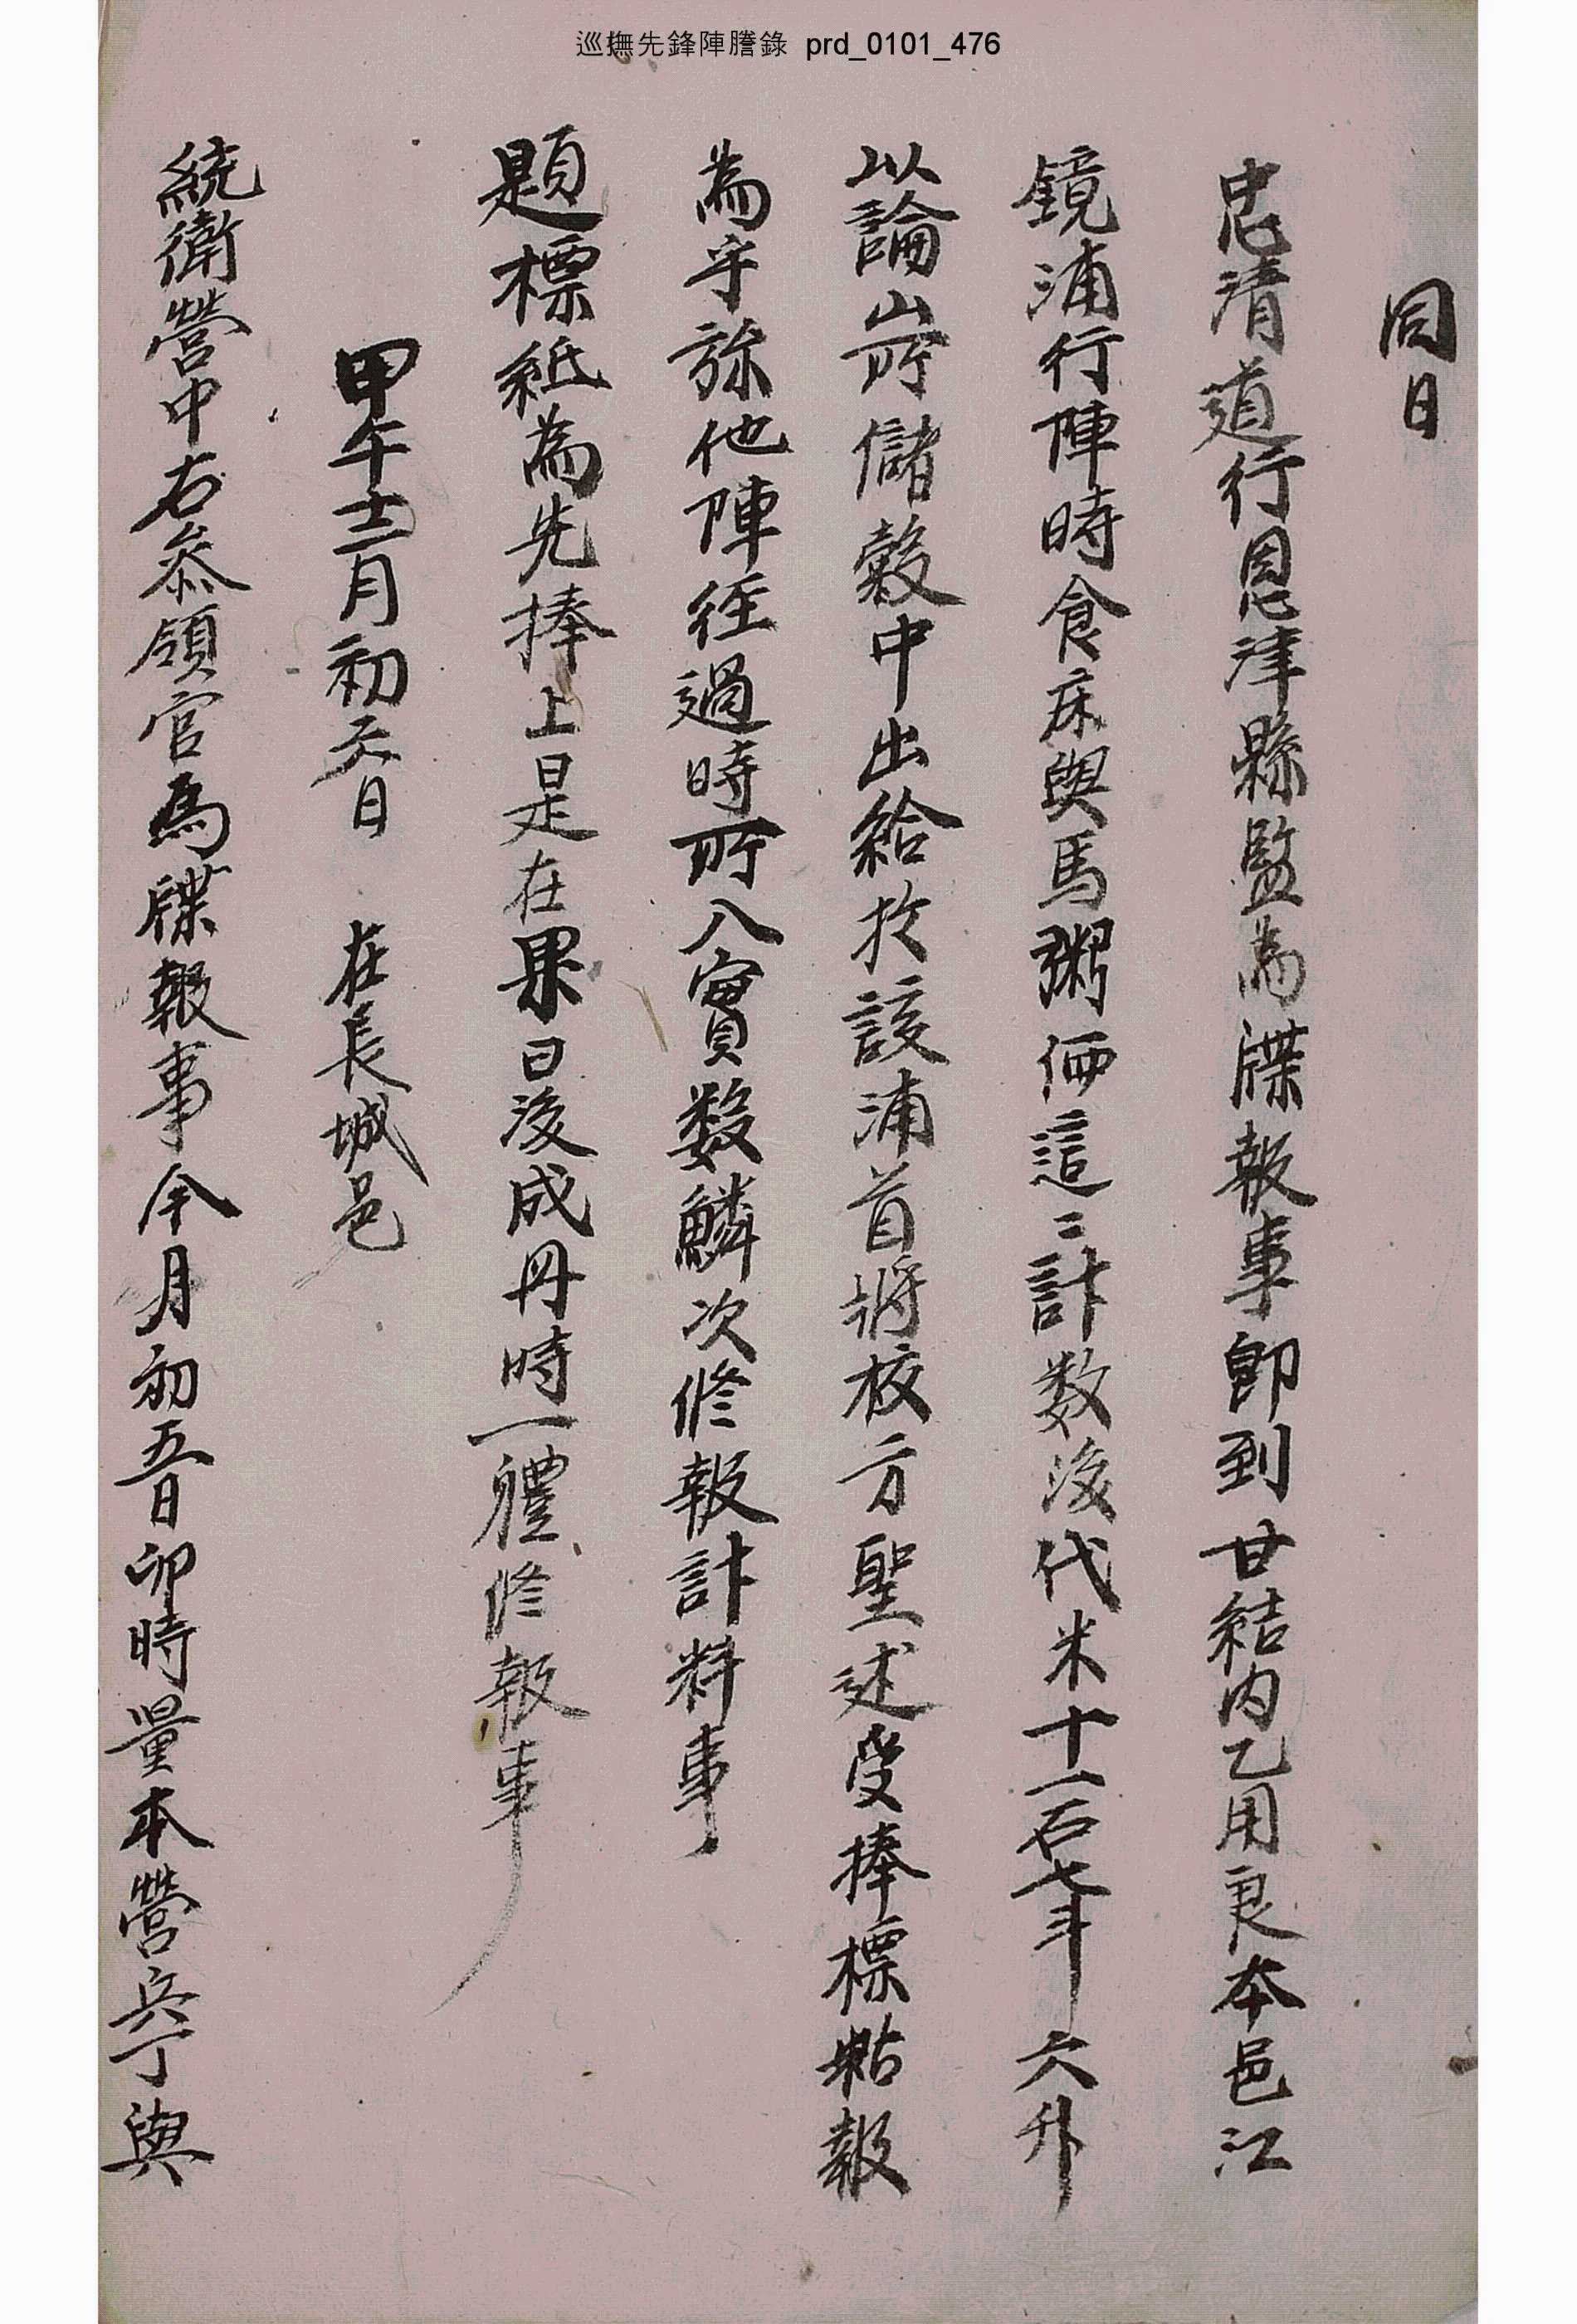 巡撫先鋒陣謄錄 prd_0101_476
同日
忠淸道行恩津縣監爲牒報事卽到甘結內乙用良本邑江
鏡浦行陣時食床與馬粥価這〻計数後代米十一石七斗六升
以論山所儲穀中出給於該浦首將校方聖述受捧標粘報
爲乎旀他陣徑過時所入實数鱗次修報計料事
題標紙爲先捧上是在果日後成冊時一體修報事
甲午十二月初六日 在長城邑
統衛營中右叅領官爲牒報事今月初五日卯時量本營兵丁與